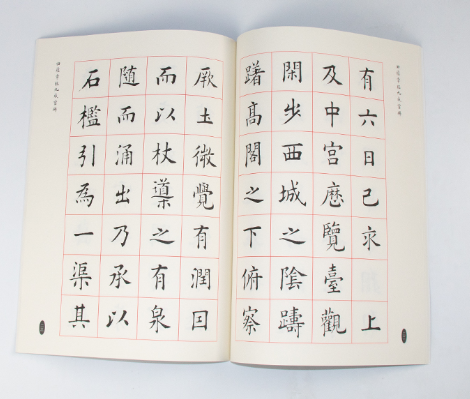 有六日己亥上
及中宮歷覽臺觀
閑步西城之陰躊
躇髙閣之下俯察
厥土微覺有潤因
而以杖導之有泉
随而涌出乃承以
石檻引為一渠其